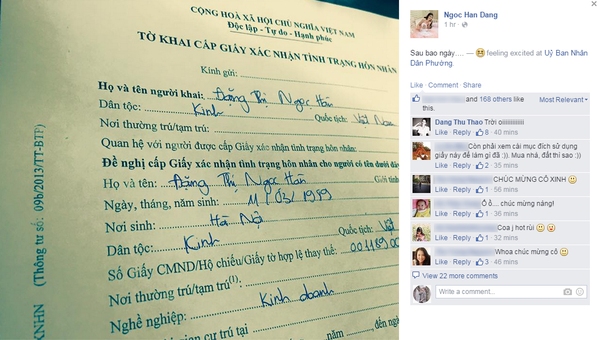 CỘNG HOÀ XÃ HỘI CHỦ NGHĨA VIỆT NAM
Độc lập - Tự do - Hạnh phúc
TỜ KHAI CẤP GIẤY XÁC NHẬN TÌNH TRẠNG HÔN NHÂN
Kính gửi:
Họ và tên người khai: Đặng Thị Ngọc Hân
Dân tộc: Kinh Quốc tịch: Việt Nam
Nơi thường trú/tạm trú:
Quan hệ với người được cấp Giấy xác nhận tình trạng hôn nhân:
Đề nghị cấp Giấy xác nhận tình trạng hôn nhân cho người có tên dưới đây
Họ và tên: Đặng Thị Ngọc Hân Giới tính
Ngày, tháng, năm sinh: 11/03/1989
Nơi sinh: Hà Nội
Dân tộc: Kinh Quốc tịch: Việt
Số Giấy CMND/Hộ chiếu/Giấy tờ hợp lệ thay thế: 00118900
Nơi thường trú/tạm trú(1):
Nghề nghiệp: Kinh doanh
cư trú tại năm đến ngày
XNHN (Thông tư số: 09b/2013/TT-BTP)
Ngoc Han Dang
1 hr
Sau bao ngày..... — feeling excited at Uỷ Ban Nhân Dân Phường.
Like · Comment · Share
and 168 others like this.
Most Relevant
Dang Thu Thao Trời oiiiiiiiiiiiiii
Like · Reply · 8 · 40 mins
Còn phải xem cái mục đích sử dụng giấy này để làm gì đã :)). Mua nhà, đất thì sao :))
Like · Reply · 2 · 35 mins
CHÚC MỪNG CÔ XINH
Like · Reply · 1 · 56 mins
Ồ ô... chúc mừng nàng!
Like · Reply · 1 · 36 mins
Coa j hot rùi
Like · Reply · 1 · 32 mins
Whoa chúc mừng cô
Like · Reply · 3 · 46 mins
View 22 more comments
Write a comment...